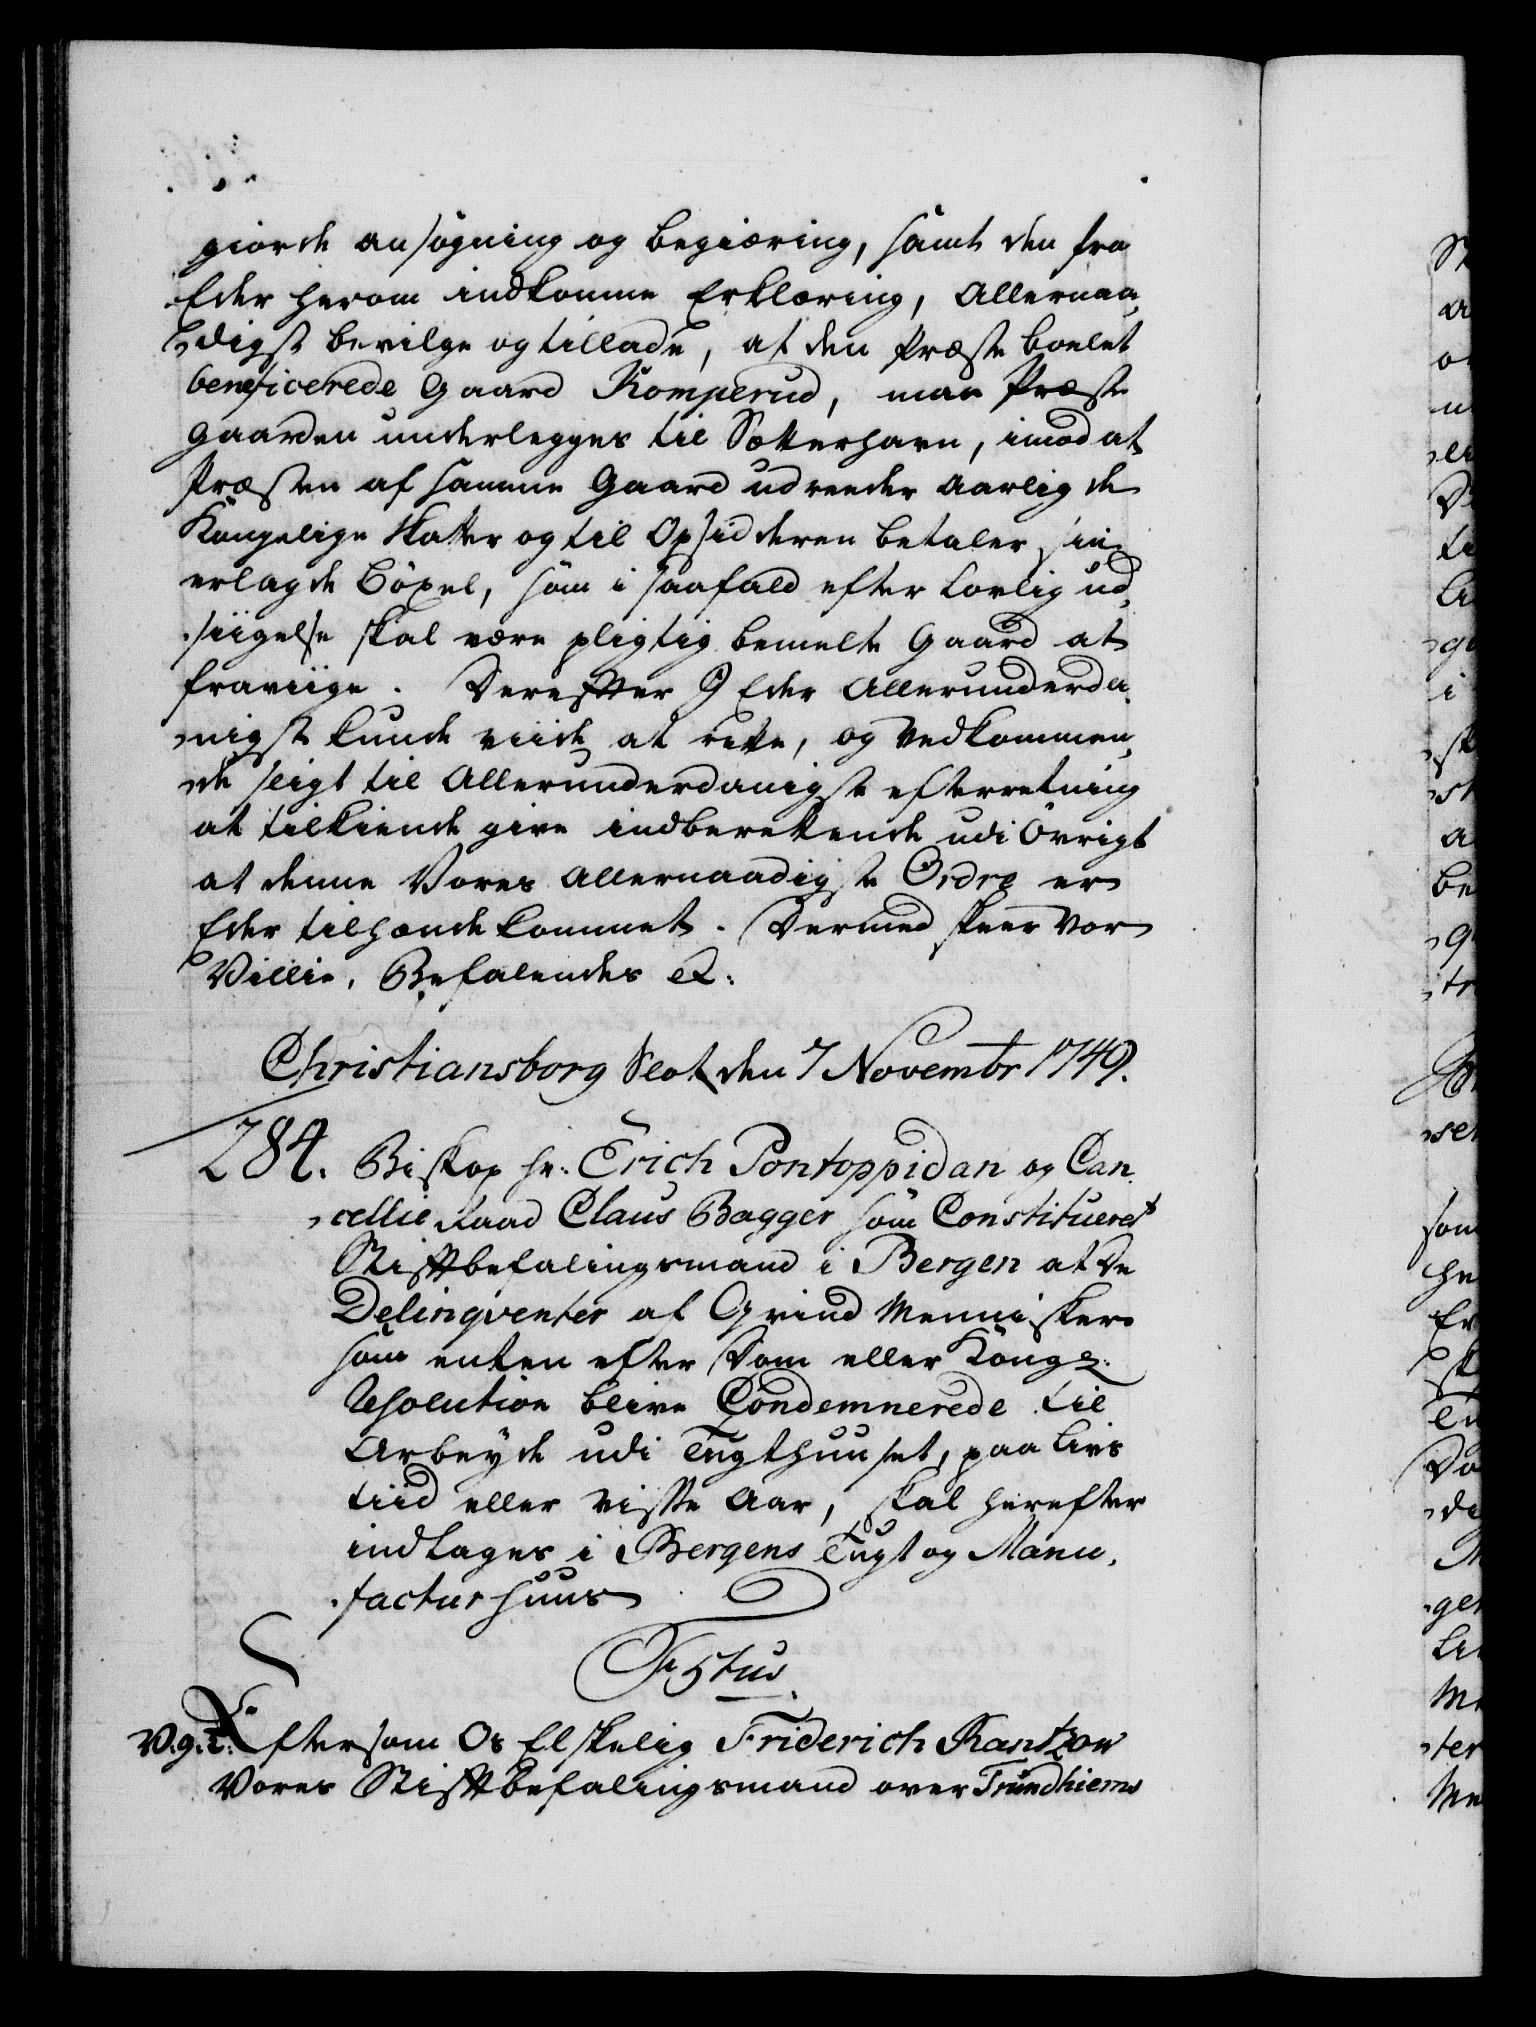 giorde ansøgning og begiæring, samt den fra
Eder herom indkomne Erklæring, Allernaa,
digst bevilge og tillade, at den Præste boelet
beneficerede Gaard Komperud, maa Præste
gaarden underlegges til Sætterhavn, imod at
Præsten af samme Gaard udreeder Aarlig de
Kongelige Skatter og til Opsidderen betaler sin
erlagde Bøxel, som i saafald efter Lovlig ud,
siigelse skal være pligtig bemelte Gaard at
fraviige. Derefter I Eder Allerunderda,
nigst kunde viide at rette, og vedkommen,
de sligt til Allerunderdanigste efterretning
at tilkiende give indberettende udi Øvrigt
at denne Vores Allernaadigste Ordre er
Eder tilhænde kommet. Dermed skeer Vor
Villie. Befalendes etc:
Christiansborg Slot den 7 Novembr 1749.
284. Biskop hr: Erich Pontoppidan og Can,
cellie Raad Claus Bagger som Constitueret
Stiftbefalingsmand i Bergen at De
Delinqventer af Qvind Mennisker
som enten efter Dom eller Kongl:
Resolution blive Condemnerede til
Arbeyde udi Tugthuuset, paa Livs
tiid eller visse Aar, skal herefter
indtages i Bergens Tugt og Manu,
factur huus
F 5tus
V.g.T: Eftersom Os Elskelig Friderich Rantzow
Vores Stiftbefalingsmand over Trundhiems